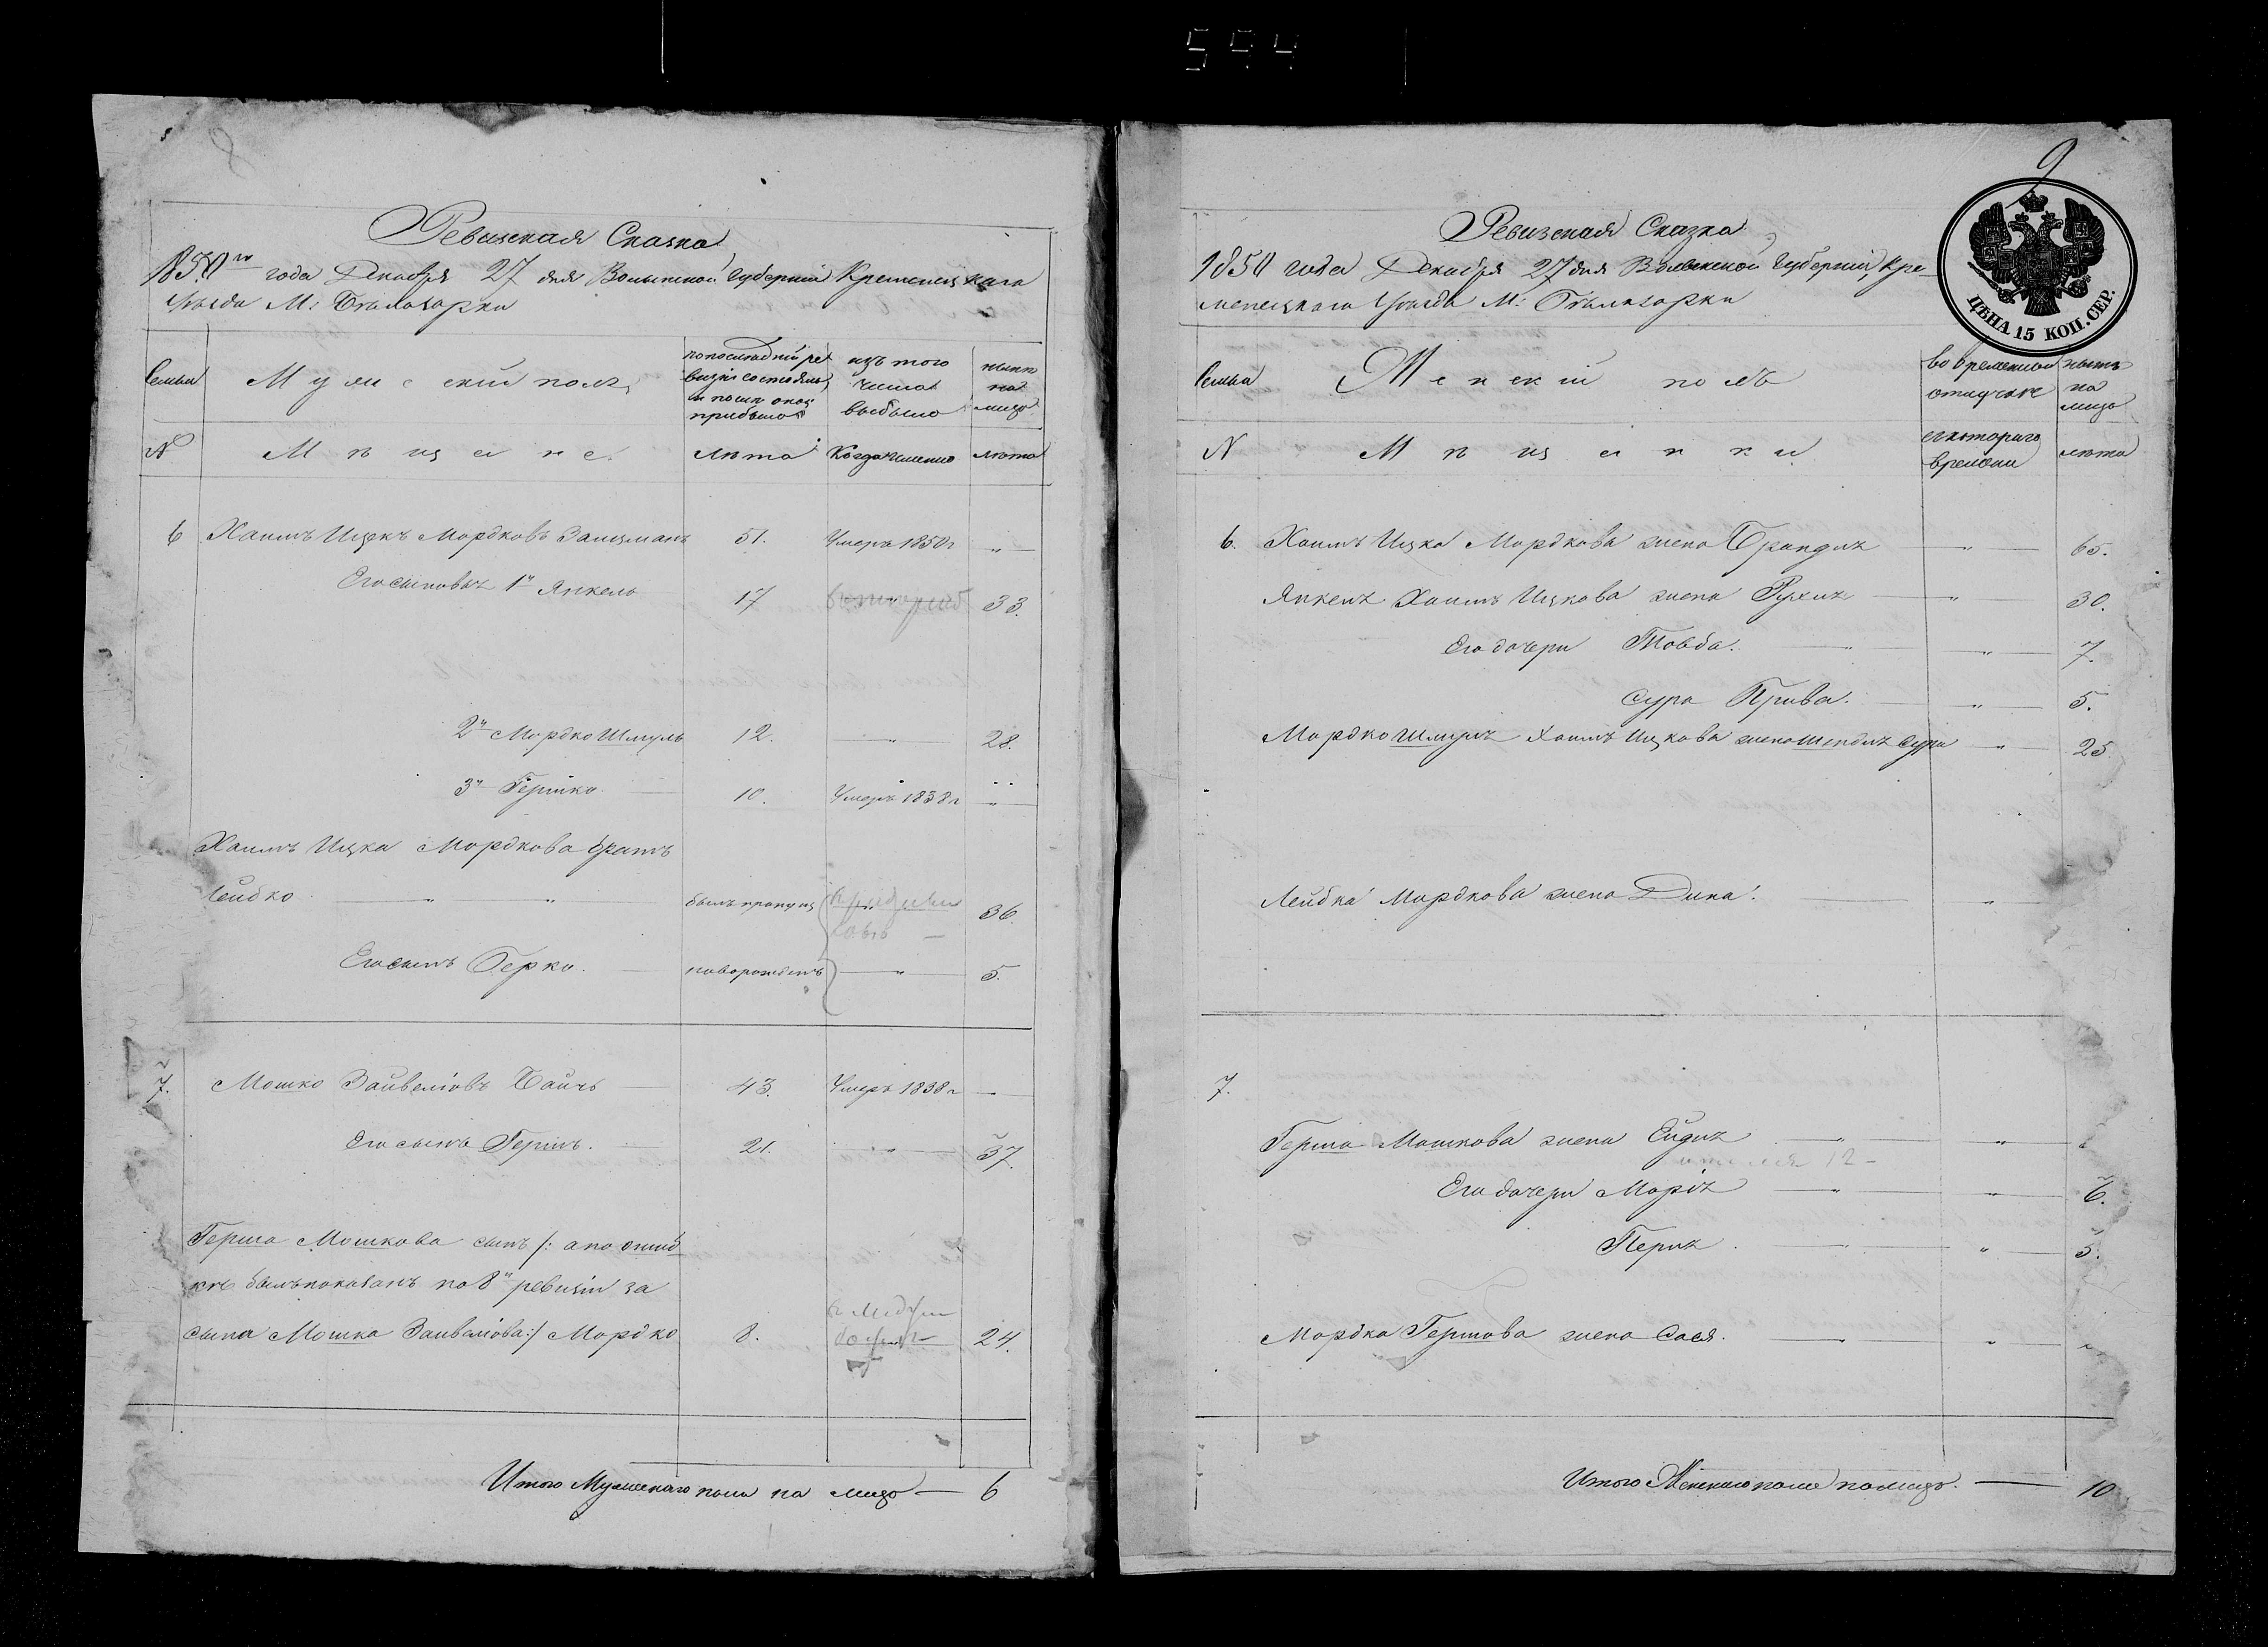 594
8
Ревизская Сказка
1850го года Декабря 27 дня Волынской Губерніи Кременецкаго
Уѣзда М: Бѣлозорки
Семьи
Мужескій полъ,
по последней ре
визіи состояло
и послѣ оной
прибыло
изъ того
числа
выбыло
нынѣ
на
лицо
N
Мѣщане.
лѣта
Когда именно
лѣта
6 Хаимъ Ицекъ Мордковъ Залцманъ 51. Умеръ 1850г "
Его сыновья 1й Янкель 17 33.
2й Мордко Шмуль 12. " 28.
3й Гершко 10. Умеръ 1838г "
Хаимъ Ицка Мордкова братъ
Лейбко " " былъ пропущ 36.
Его сынъ Берко. новорожденъ " 5.
7. Мошко Зайвеліовъ Байчъ 43. Умеръ 1838г
Его сынъ Гершъ. 21. " 37.
Герша Мошкова сынъ /: а по ошиб
кѣ былъ показанъ по 8й ревизіи за
сына Мошка Заивеліова :/ Мордко 8. 24.
Итого Мужескаго пола на лицо — 6
9
Ревизская Сказка
1850 года Декабря 27 дня Волынской Губерніи, Кре-
менецкаго Уѣзда М: Бѣлозорки
ЦѢНА 15 КОП. СЕР.
Семьи
Женскій полъ
во временной
отлучкѣ
нынѣ
на
лицо
N
Мѣщанки
съ котораго
времени
лѣта
6. Хаимъ Ицка Мордкова жена Брандля " 65.
Янкеля Хаимъ Ицкова жена Рухля " 30.
Его дочери Товба. " 7.
Сура Прива. " 5.
Мордко Шмуля Хаимъ Ицкова жена Шендля Сура " 25.
Лейбка Мордкова жена Дина. "
7.
Герша Мошкова жена Ейдля "
12 —
Его дочери Марія " 6.
Перля. " 5.
Мордка Гершова жена Сося. "
Итого Женскаго пола на лицо. — 10